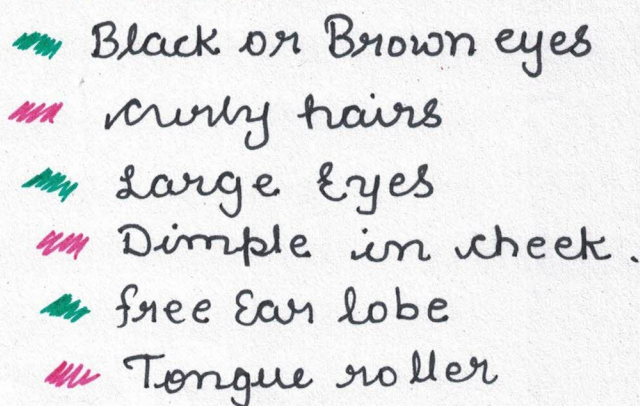 Black or Brown eyes
curly hairs
Large Eyes
Dimple in cheek.
free Ear lobe
Tongue roller